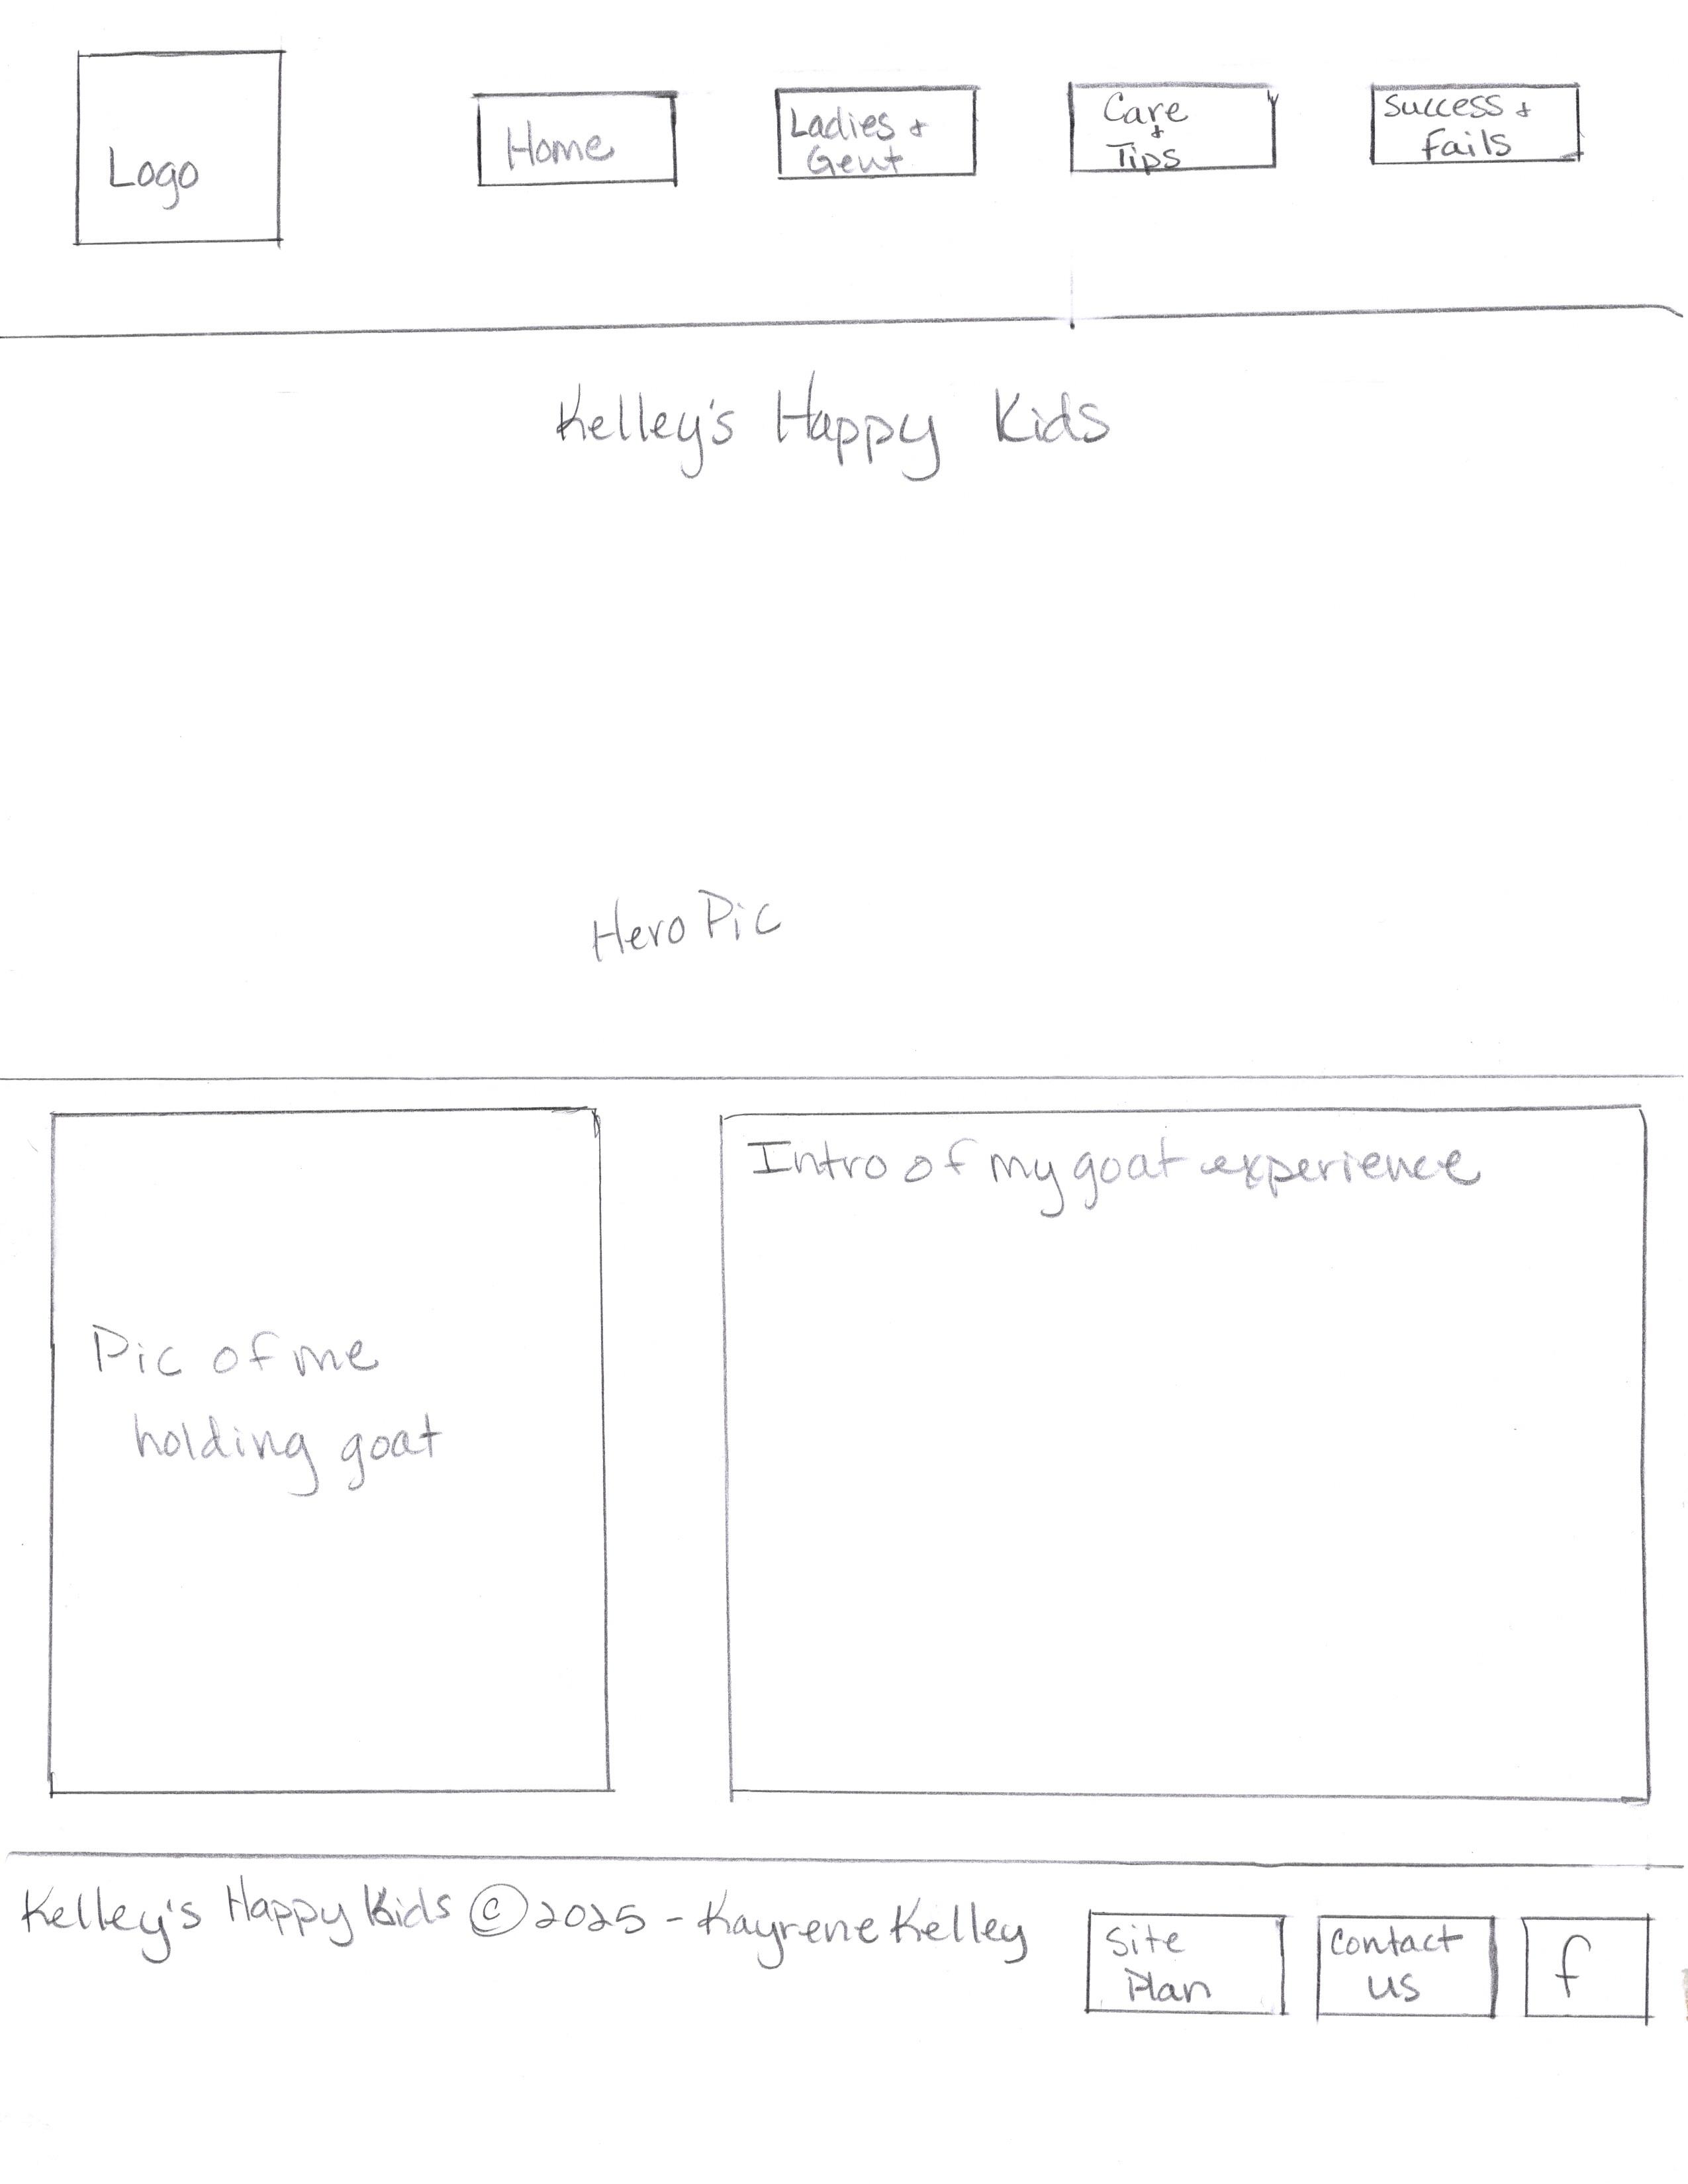 Logo
Home
Ladies +
Gent
Care
+
Tips
Success +
Fails
Kelley's Happy Kids
Hero Pic
Pic of me
holding goat
Intro of my goat experience
Kelley's Happy Kids © 2025 - Kayrene Kelley
Site
Plan
Contact
us
f